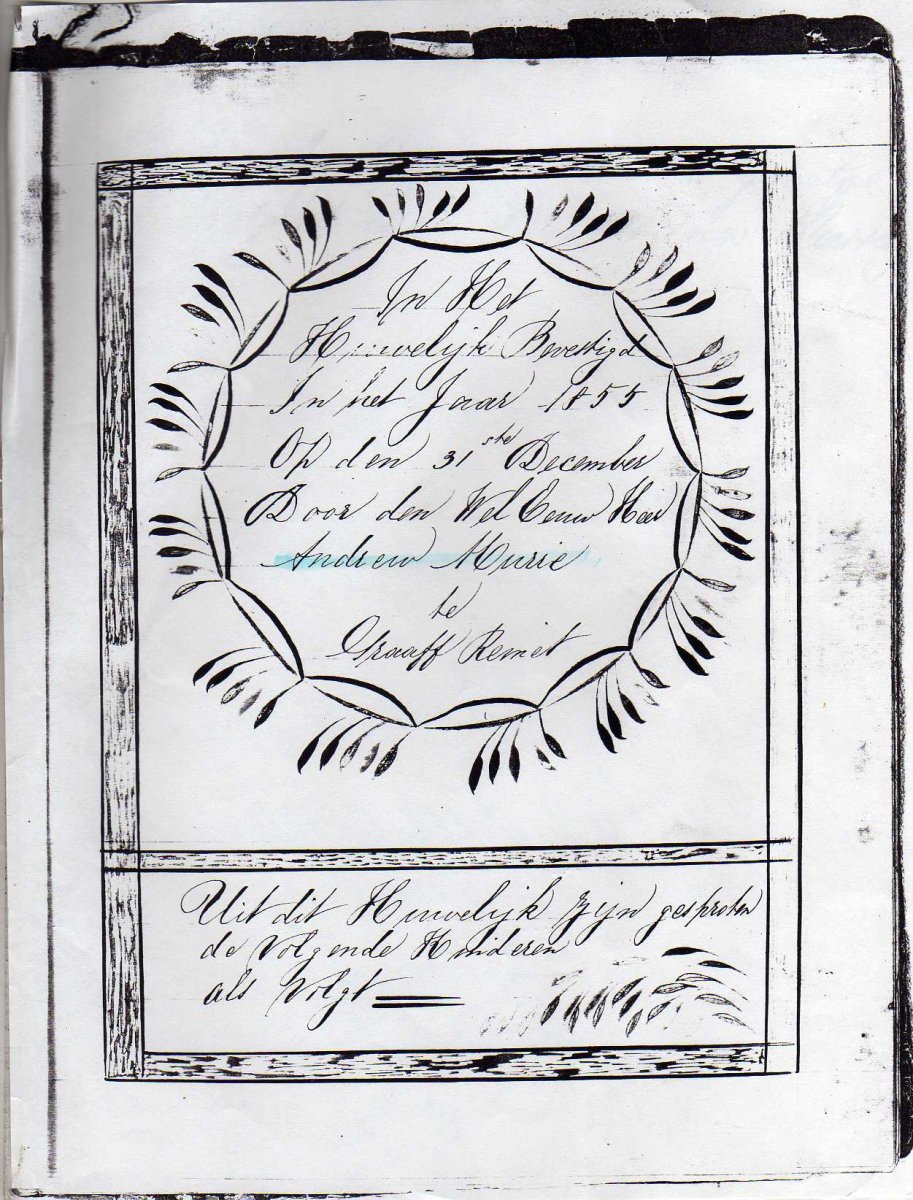 In Het
Huwelijk Bevestigd
In het Jaar 1855
Op den 31ste December
Door den Wel Eerw Heer
Andrew Murrie
te
Graaff Reinet
Uit dit Huwelijk zijn gesproten
de Volgende Kinderen
als Volgt